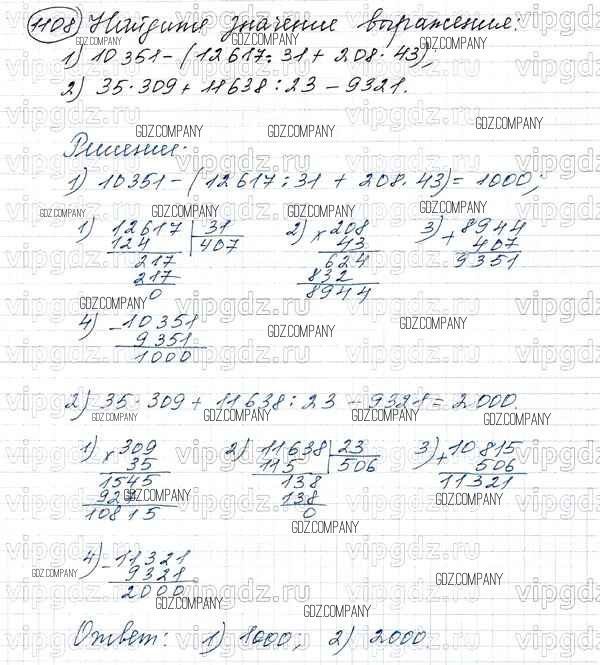 1108 Найдите значение выражения:
1) 10351-(12617:31+208·43);
2) 35·309+11638:23-9321.
Решение:
1) 10351-(12617:31+208·43)=1000;
1) 12617 | 31
124 | 407
217
217
0
2) × 208
43
624
832
8944
3) + 8944
407
9351
4) - 10351
9351
1000
2) 35·309+11638:23-9321=2000.
1) × 309
35
1545
927
10815
2) 11638 | 23
115 | 506
138
138
0
3) + 10815
506
11321
4) - 11321
9321
2000
Ответ: 1) 1000; 2) 2000.
vipgdz.ru
GDZ.COMPANY